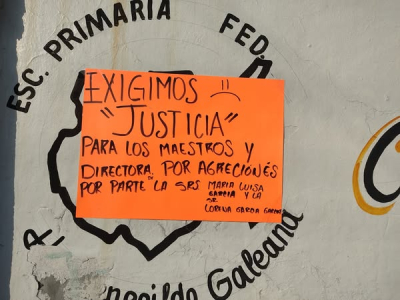 ESC. PRIMARIA FED.
EXIGIMOS
"JUSTICIA"
PARA LOS MAESTROS Y
DIRECTORA, POR AGRECIONES
POR PARTE DE LA SRS MARIA LUISA
GARCIA Y LA
SR.
LORENA GARCIA
Galeana